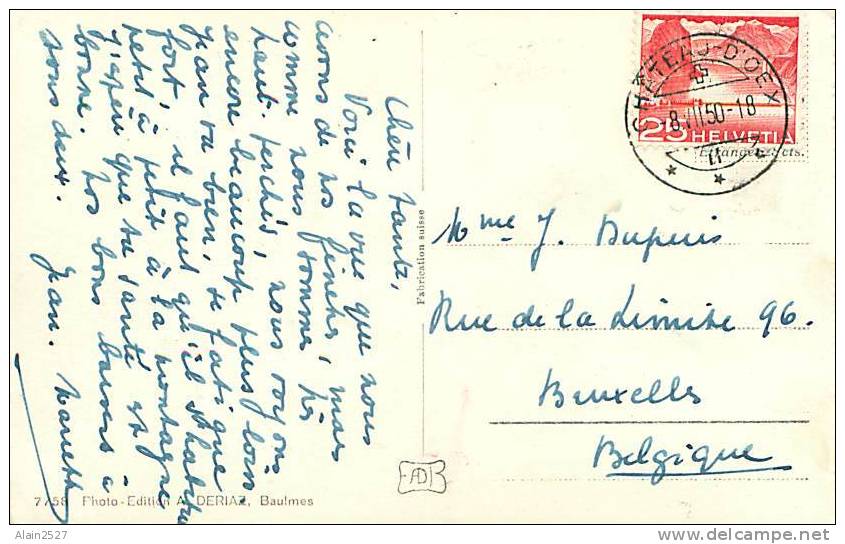 Chère tante,
Voici la vue que nous
avons de nos fenêtres, mais
comme nous sommes très
haut-perchés, nous voyons
encore beaucoup plus loin
Jean va bien, se fatigue
fort, il faut qu'il s'habitue
petit à petit à la montagne
J'espère que ta santé est
bonne. Nos bons baisers à
vous deux. Jean. Nanette
Fabrication suisse
CHÂTEAU-D'OEX
-8.VII.50-18
25 HELVETIA
Etranger cts.
Mme J. Dupuis
Rue de la Limite 96.
Bruxelles
Belgique
AD
7758 Photo-Edition A. DERIAZ, Baulmes
Alain2527
delcampe.net